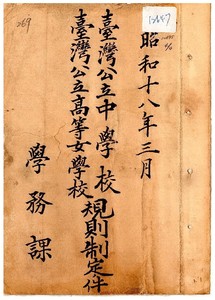 昭和十八年三月
臺灣公立中學校
臺灣公立高等女學校
規則制定件
學務課
269